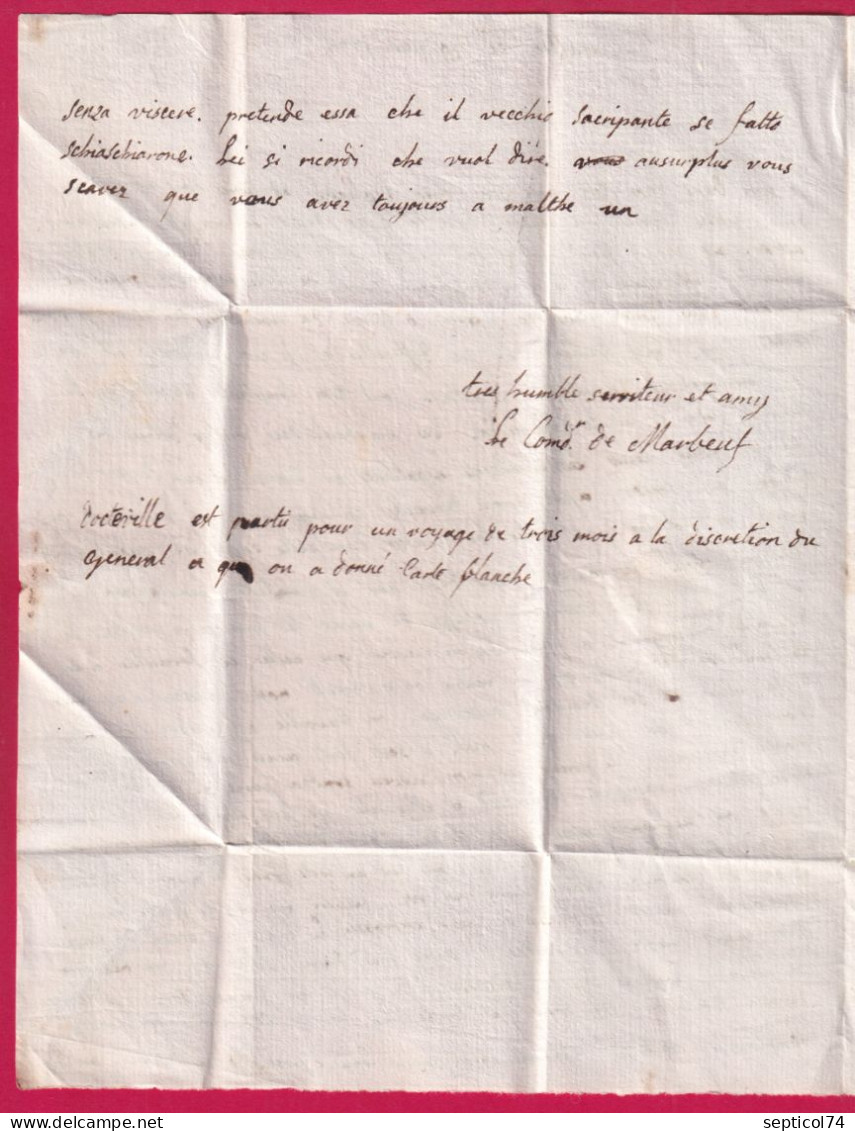 senza viscere. pretende essa che il vecchio sacripante se fatto
schiaschiarone. Lei si ricordi che vuol dire. vous ausurplus vous
scavez que vous avez toujours a malthe un
tres humble serviteur et amy
le Comd.r de Marbeuf
docteville est partu pour un voyage de trois mois a la discretion du
general a qui on a donné carte blanche
DELCAMPE.NET
septicol74